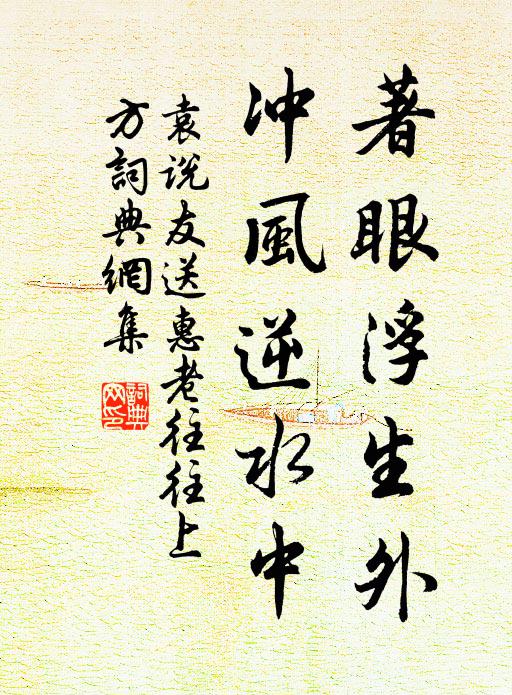 著眼浮生外
冲風逆水中
袁説友送惠老往往上
方詞典網集
詞典
网印